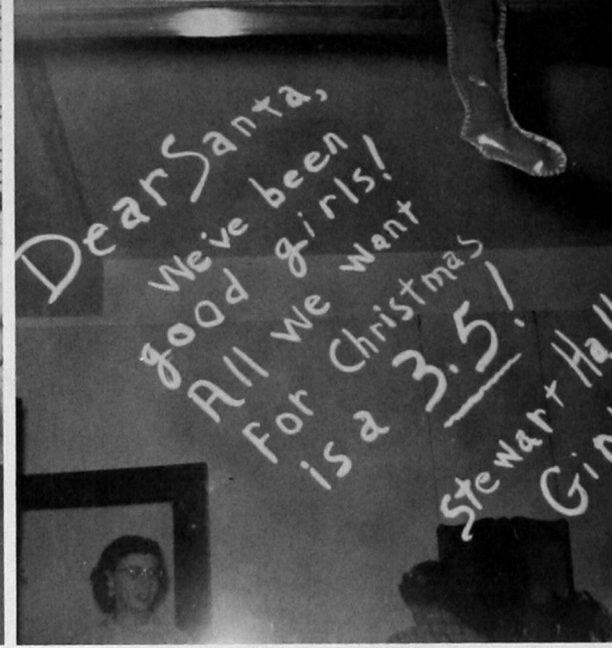 Dear Santa,
We've been
good girls!
All we want
For Christmas
is a 3.5!
Stewart